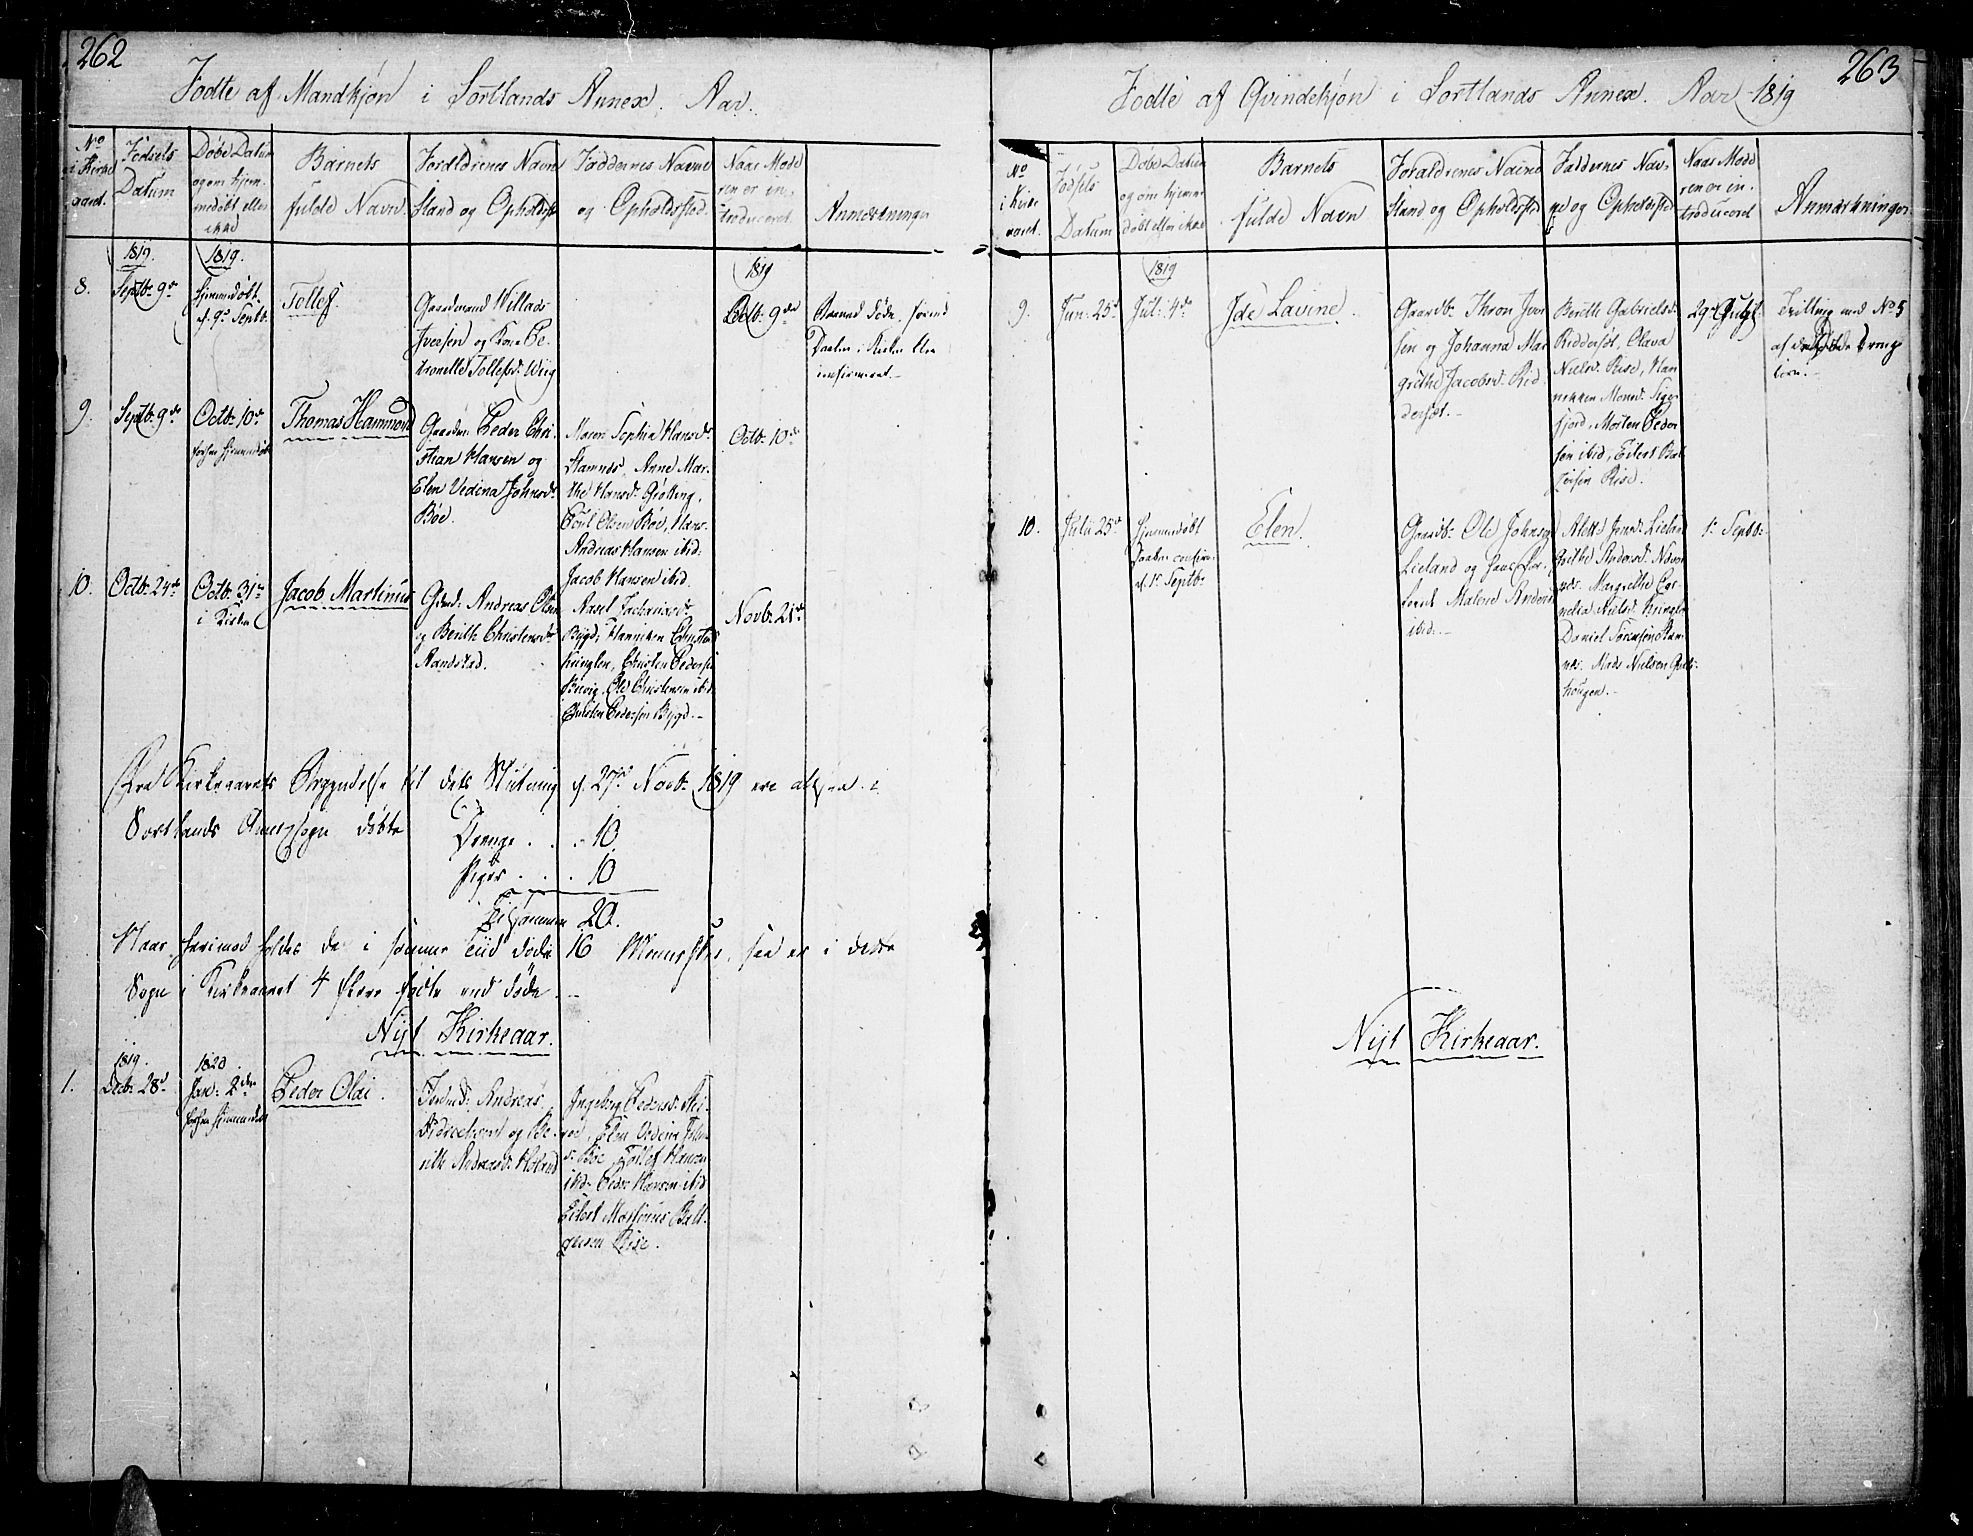 262
Fødte af Mandkjøn i Sortlands Annex. Aar.
No i Kirke aaret.
Fødsels Datum
Døbe Datum og om hjem medøbt eller ikke
Barnets fulde Navn.
Foreldrenes Navne Stand og Opholdsst
Faddernes Navne og Opholdssted.
Naar Mode ren er in troduceret.
Anmærkninger
1819.
1819.
1819
8.
Septb: 9de
hjemmedøbt
d. 9de Septb:
Tollef.
Gaardmand Willads
Iversen og Kone Pe-
tronelle Tollefsd: Wiig
9de
døde, førend
Daaben i Kirken blev
confirmeret.
9.
Septb: 9de
Octb: 10de
Thomas Hammond
Gaardm: Peder Chri-
stian Hansen og
Elen Vedina Johnsd:
Bøe.
Maren Sophia Hansd:
Stamnes, Anne Mar-
the Hansd:
Poul Olsen Bøe, Hans
Andreas Hansen ibid:
Jacob Hansen ibid.
Octb: 10de
10.
Octb: 24de
Octb: 31te
i Kirken
Jacob Martinus
Gmd: Andreas Olsen
og Berith Christensd:
Sandstad.
Aasel Zachariasd:
Bygd, Hanniken
Kringlen, Christen Pedersen
Ole Christensen ibid
Pedersen Bygd.
Novb: 21de
Fra Kirkeaarets Begyndelse til dets Slutning d. 27de Novb: 1819 ere altsaa i
Sortlands Annexsogn døbte
Drenge . . . 10.
Piger . . . 10
Tilsammen 20.
Naar herimod holdes de i samme Tiid døde 16 Mennesker, saa er i dette
Sogn i Kirkeaaret 4 flere fødte end døde.
Nyt Kirkeaar.
1819.
1820
1.
Decb: 28d
Jan: 2den
Peder Olai.
Andreas
og Be-
rith Andreasd:
Ingeborg Pedersd:
Elen Vedina
Bøe, Tollef Hansen
ibid. Peder Hansen ibid
Eilert Martinus Balt-
zersen Rise.
263
Fødte af Qvindekjøn i Sortlands Annex. Aar 1819
No i Kirke aaret.
Fødsels Datum
Døbe Datum og om hjemme døbt eller ikke
Barnets fulde Navn
Foraldrenes Navne Stand og Opholdssted
Faddernes Nav- ne og Opholdssted
Naar Mode ren er in- troduceret
Anmærkninger
1819
9.
Jun: 25d
Jul: 4de
Ide Lavine.
Gaardb: Thron Iver
sen og Johanna Mar
grethe Jacobsd: Rid
dersæt.
Berith Gabrielsd:
Riddersæt, Olava
Nielsd: Rise, Han
nikken Monsd: Siger
fjord, Morten Peder
sen ibid, Eilert Bal
zersen Rise.
29de
Tvilling med No 5
af Drenge
10.
Julii 25de
hjemmedøbt
Daaben confirm.
d. 1te Septb:
Elen.
Gaardb: Ole Johnsen
Lieland og
Malene Andersd
ibid.
Jensd: Lieland
Grethe Andersd:
Margrethe Cor-
nelia Nielsd: Kringlen
Daniel Sørensen Stam-
nes. Mads Nielsen Guld-
hougen.
1te Septb:
Nyt Kirkeaar.